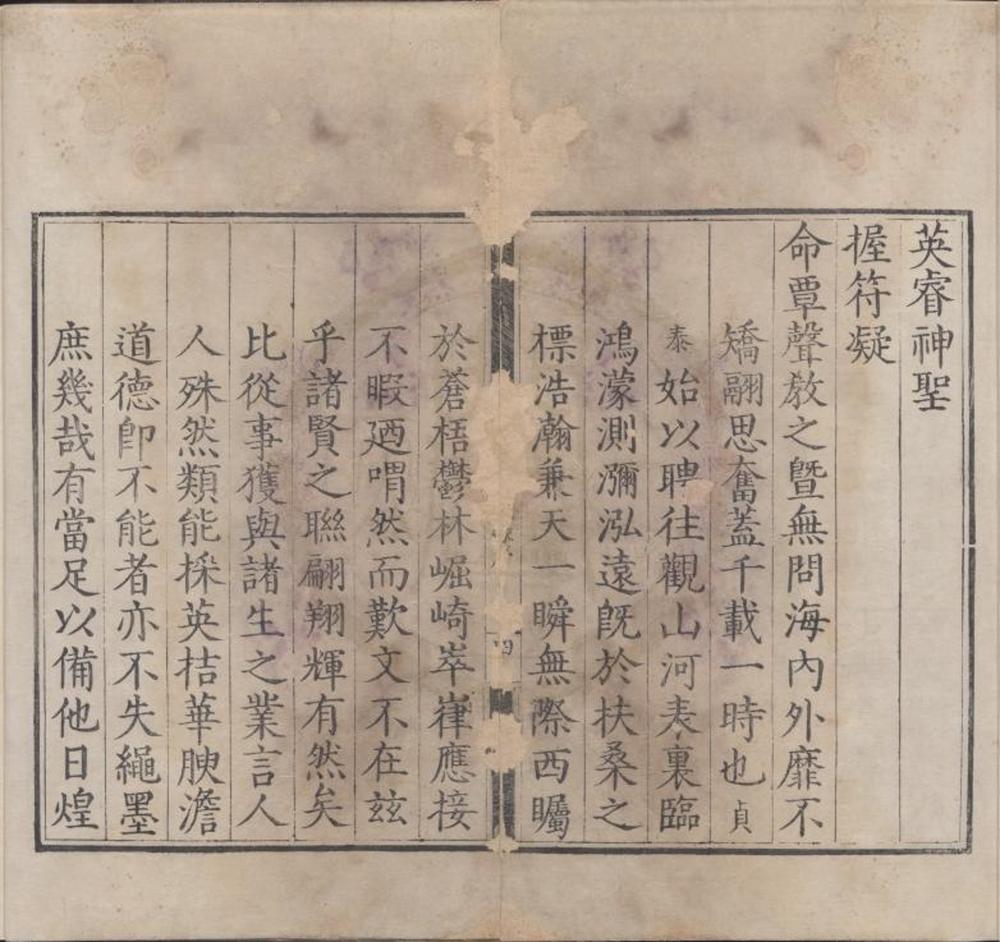 英睿神聖
握符凝
命覃聲敎之曁無問海內外靡不
矯翮思奮蓋千載一時也貞
泰始以聘往觀山河表裏臨
鴻濛測瀰泓遠旣於扶桑之
標浩瀚兼天一瞬無際西矚
四
於蒼梧鬱林崛崎崒嵂應接
不暇廼喟然而歎文不在玆
乎諸賢之聯翩翔輝有然矣
比從事獲與諸生之業言人
人殊然類能採英拮華腴澹
道德卽不能者亦不失繩墨
庶幾哉有當足以備他日煌